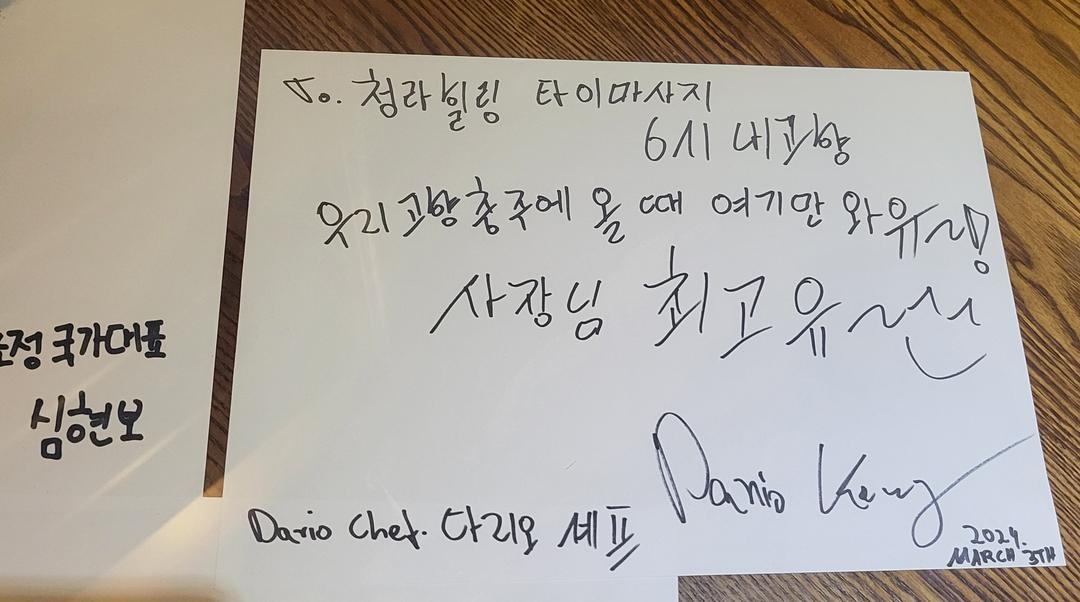 To. 청라힐링 타이마사지
6시 내고향
우리 고향 충주에 올 때 여기만 와유~!
사장님 최고유~
Dario Kang
Dario Chef. 다리오 셰프
2024.
MARCH 5TH
정 국가대표
심현보